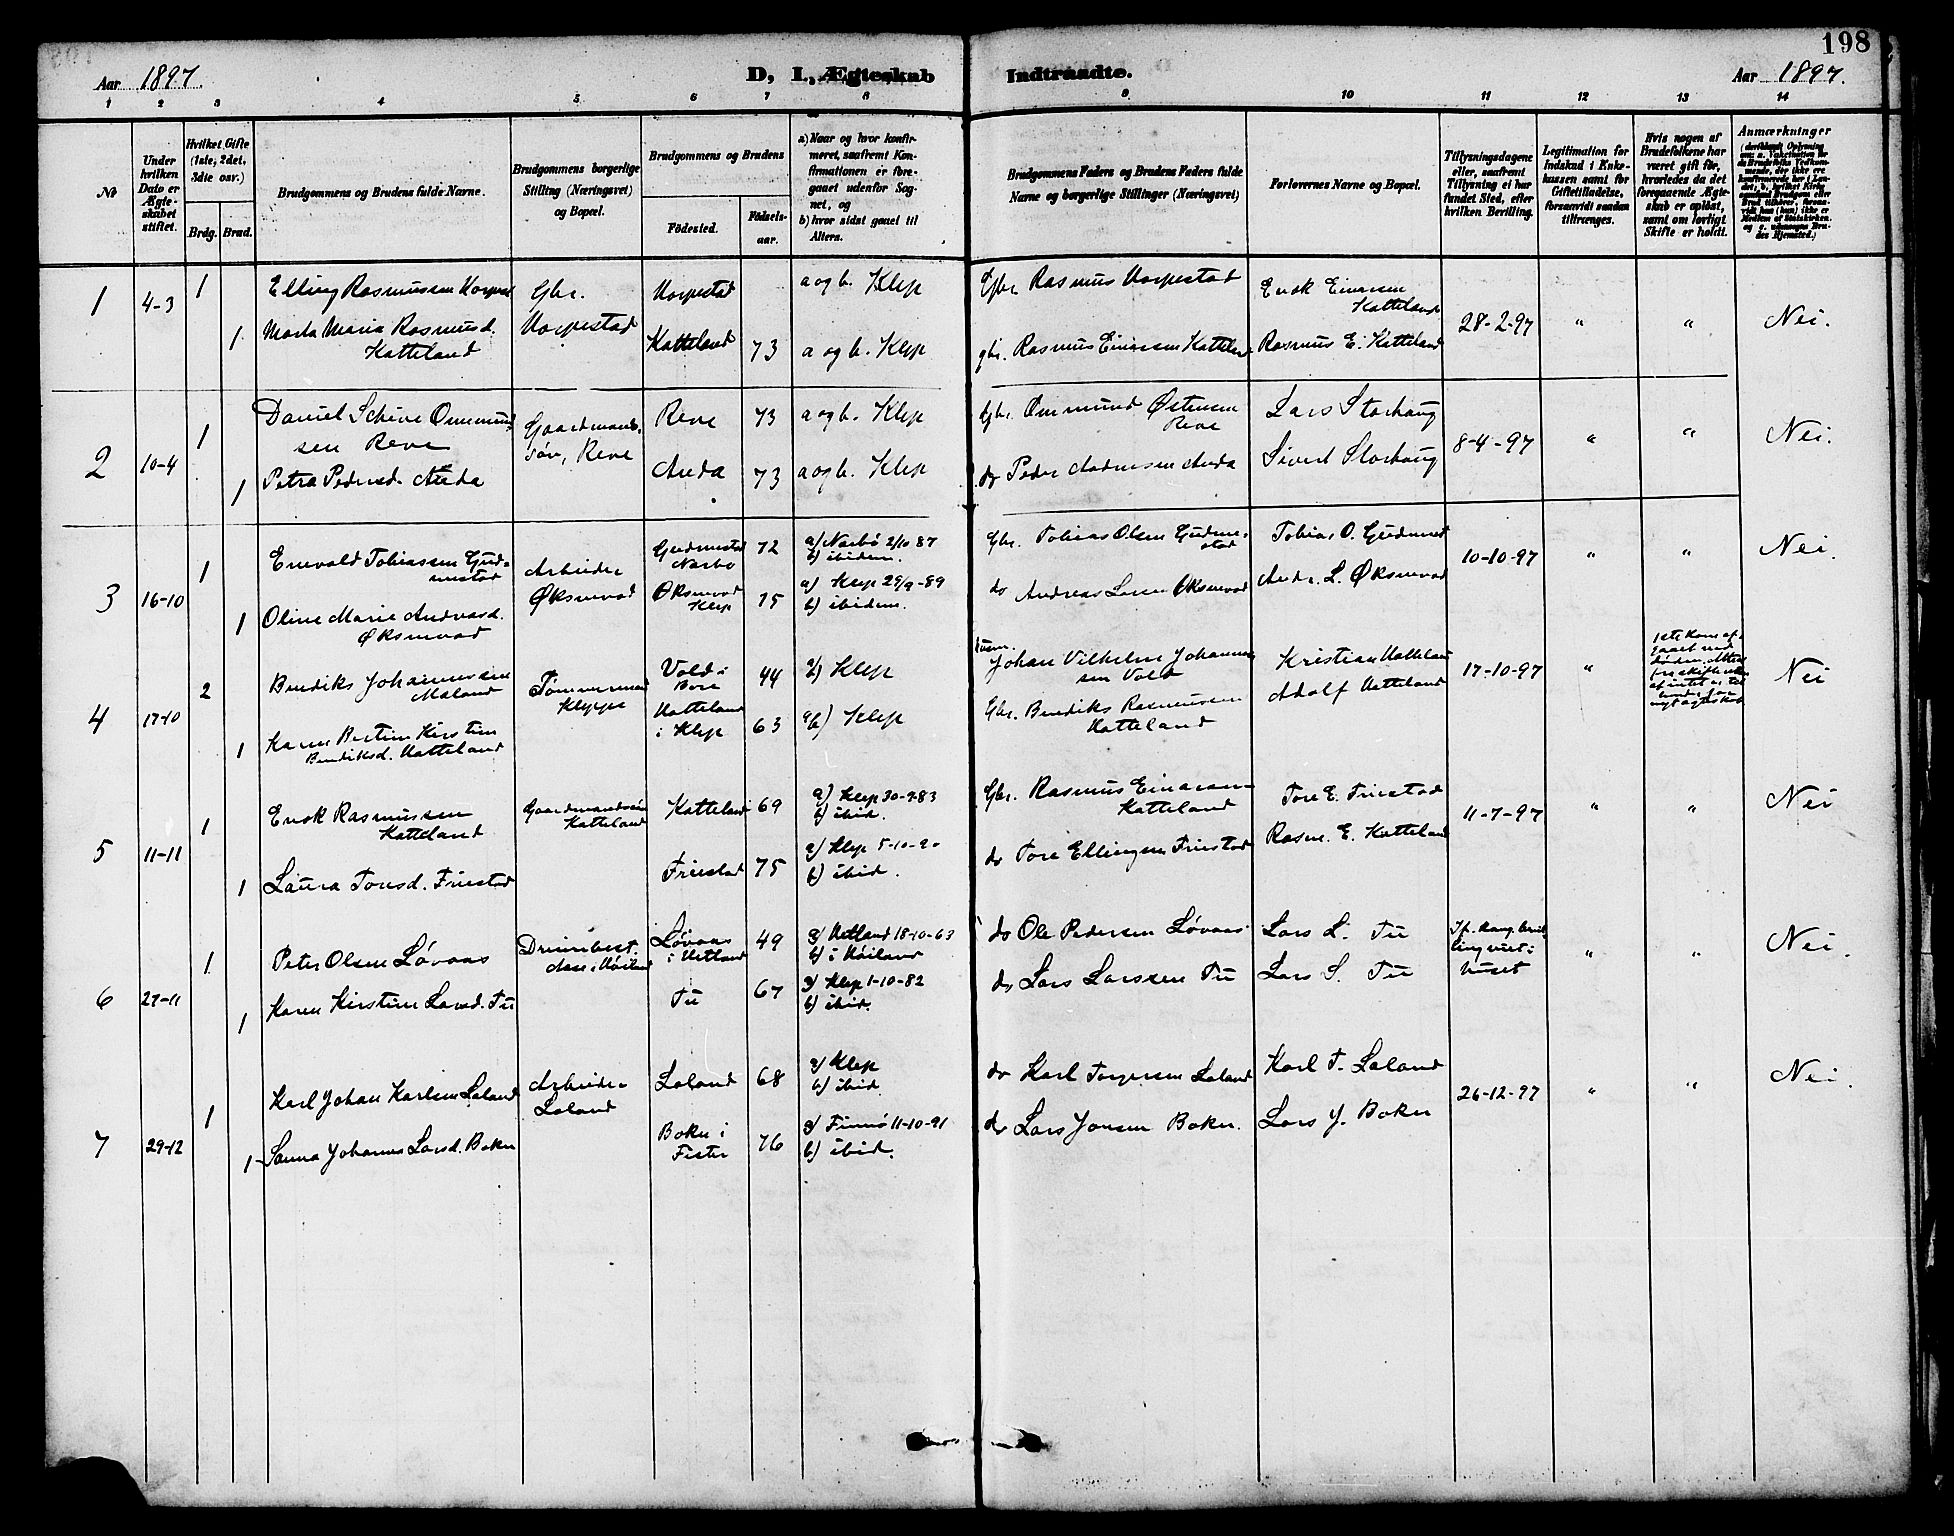 198
Aar 1897.
D, I., Ægteskab Indtraadte.
Aar 1897.
1 2 3 4 5 6 7 8 9. 10 11 12 13 14
№
Under hvilken Dato er Ægteskabet stiftet.
Hvilket Gifte (1ste, 2det, 3die osv.)
Brdg. Brud.
Brudgommens og Brudens fulde Navne.
Brudgommens borgerlige Stilling (Næringsvei) og Bopæl.
Brudgommens og Brudens
Fødested.
Fødselsaar.
a) Naar og hvor konfirmeret, saafremt Konfirmationen er foregaaet udenfor Sognet, og
b) hvor sidst gaaet til Alters.
Brudgommens Faders og Brudens Faders fulde Navne og borgerlige Stillinger (Næringsvei)
Forlovernes Navne og Bopæl.
Tillysningsdagene eller, saafremt Tillysning ei har fundet Sted, efter hvilken Bevilling.
Legitimation for Indskud i Enkekassen samt for Giftetilladelse, forsaavidt saadan tiltrænges.
Hvis nogen af Brudefolkene har været gift før, hvorledes da det foregaaende Ægteskab er opløst, samt om lovligt Skifte er holdt.
Anmærkninger
1 4-3 1
Elling Rasmussen
Gbr.
Vorpestad
a og b. Klep
Gbr. Rasmus Vorpestad
Enok Einarsen
Katteland
1 Marta Maria Rasmusd.
Katteland
Vorpestad
Katteland 73
a og b. Klep
gbr. Rasmus Einarsen Katteland
Rasmus E. Katteland
28-2-97 " " Nei.
2 10-4 1
Daniel Schive Ommundsen Reve
Gaardmandssøn, Reve
Reve 73
a og b. Klep
Gbr. Ommund Østensen
Reve
Lars Storhaug
1 Petra Pedersd. Anda
Anda 73
a og b. Klep
do Peder Andersen Anda
Sivert Storhaug
8-4-97 " " Nei.
3 16-10 1
Enevald Tobiassen Gudmestad
Arbeider
Øksnevad
Gudmestad
Nærbø 72
a) Nærbø 2/10 87
b) ibidem.
Gbr. Tobias Olsen Gudmestad
Tobias O. Gudmest
1 Oline Marie Andreasd.
Øksnevad
Øksnevad
Klep 75
a) Klep 29/9-89
b) ibidem.
do Andreas Larsen Øksnevad
Andr. L. Øksnevad
10-10-97 " " Nei.
4 17-10 2
Bendiks Johannessen
Maland
Tømmermand
Kleppe
Vold i
Bore 44
a/) Klep
Johan Vilhelm Johannessen Vold
Kristian Katteland
1 Karen Bertine Kirstine
Bendiksd. Katteland
Katteland
i Klep 63
a/b) Klep
Gbr. Bendiks Rasmussen
Katteland
Adolf Katteland
17-10-97 "
Nei
5 11-11 1
Enok Rasmussen
Katteland
Gaardmandssøn
Katteland
Katteland 69
a) Klep 30-9-83
b) ibid.
Gbr. Rasmus Einarsen
Katteland
Tore E. Friestad
1 Laura Toresd. Friestad
Friestad 75
a) Klep 5-10-90
b) ibid.
do Tore Ellingsen Friestad
Rasm. E. Katteland
11-7-97 " " Nei
6 27-11 1
Peter Olsen Løvaas
Løvaas
i Hetland 49
a) Hetland 18-10-63
b) i Høiland
do Ole Pedersen Løvaas
Lars L. Tu
1 Karen Kirstine Larsd. Tu
Tu 67
a) Klep 1-10-82
b) ibid.
do Lars Larssen Tu
Lars S. Tu
" " Nei.
7 29-12 1
Karl Johan Karlsen Laland
Arbeider
Laland
Laland 68
a) Klep
b) ibid
do Karl Torgersen Laland
Karl T. Laland
1 Johanne Larsd. Bokn
Bokn i
Fister 76
a) Finnø 11-10-91
b) ibid.
do Lars Jonsen Bokn.
Lars J. Bokn
26-12-97 " " Nei.